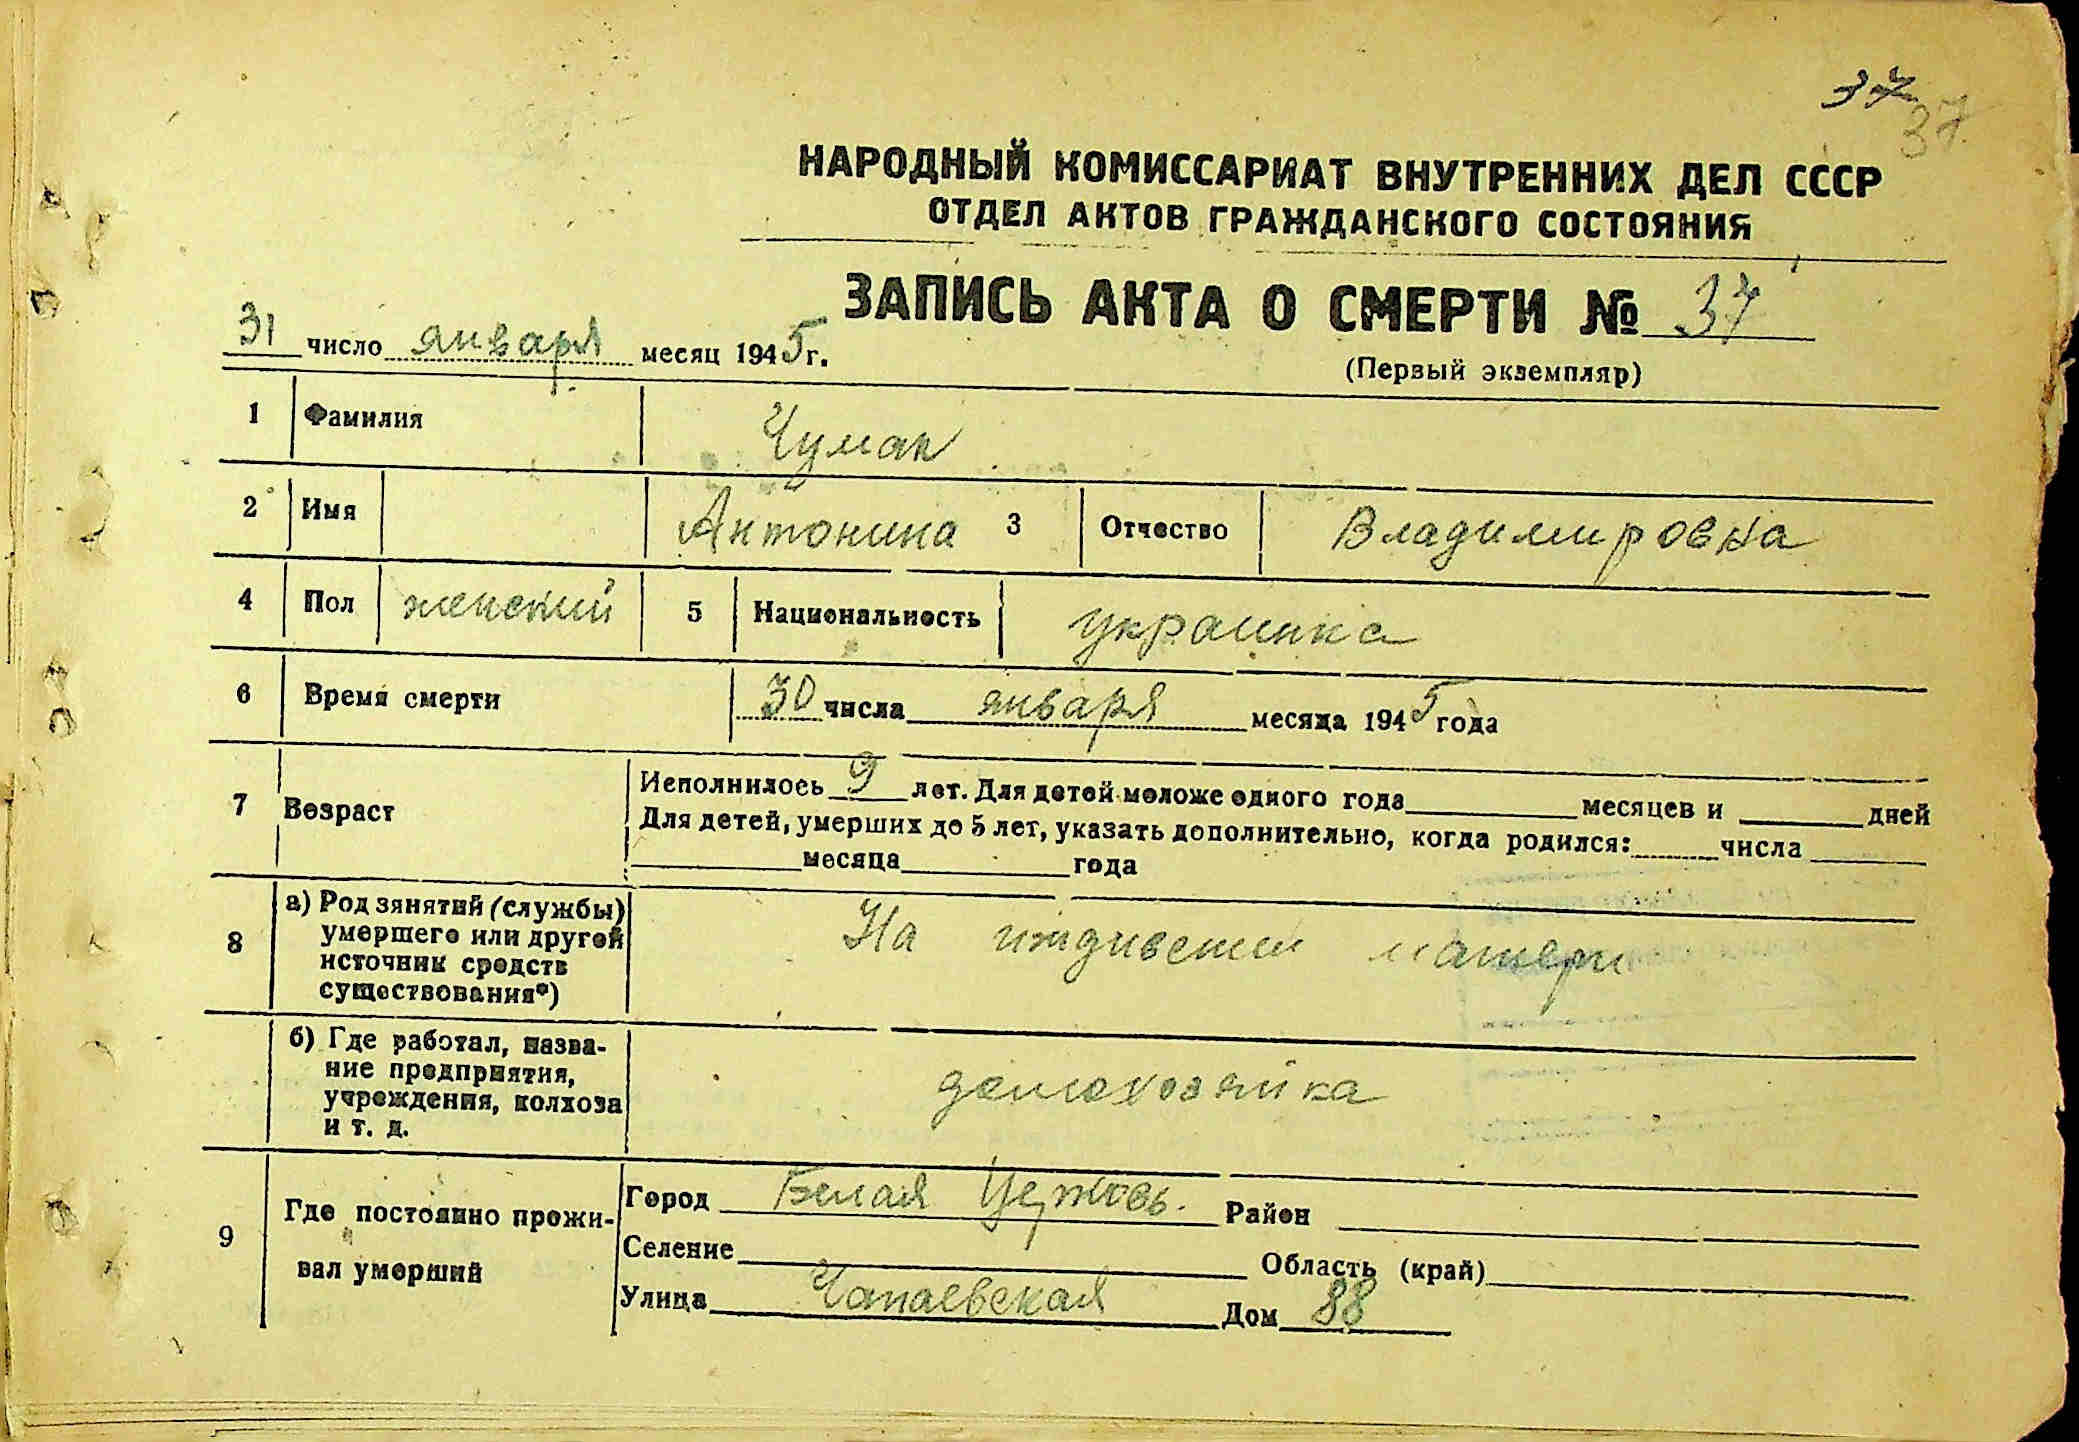 37
37
НАРОДНЫЙ КОМИССАРИАТ ВНУТРЕННИХ ДЕЛ СССР
ОТДЕЛ АКТОВ ГРАЖДАНСКОГО СОСТОЯНИЯ
ЗАПИСЬ АКТА О СМЕРТИ № 37
31 число января месяц 1945 г.
(Первый экземпляр)
1 Фамилия Чумак
2 Имя Антонина 3 Отчество Владимировна
4 Пол женский 5 Национальность украинка
6 Время смерти 30 числа января месяца 1945 года
7 Возраст
Исполнилось 9 лет. Для детей моложе одного года месяцев и дней
Для детей, умерших до 5 лет, указать дополнительно, когда родился: числа
месяца года
8
а) Род занятий (службы)
умершего или другой
источник средств
существования*)
На иждивении матери
б) Где работал, назва-
ние предприятия,
учреждения, колхоза
и т. д.
домохозяйка
9
Где постоянно прожи-
вал умерший
Город Белая Церковь. Район
Селение Область (край)
Улица Чапаевская Дом 88